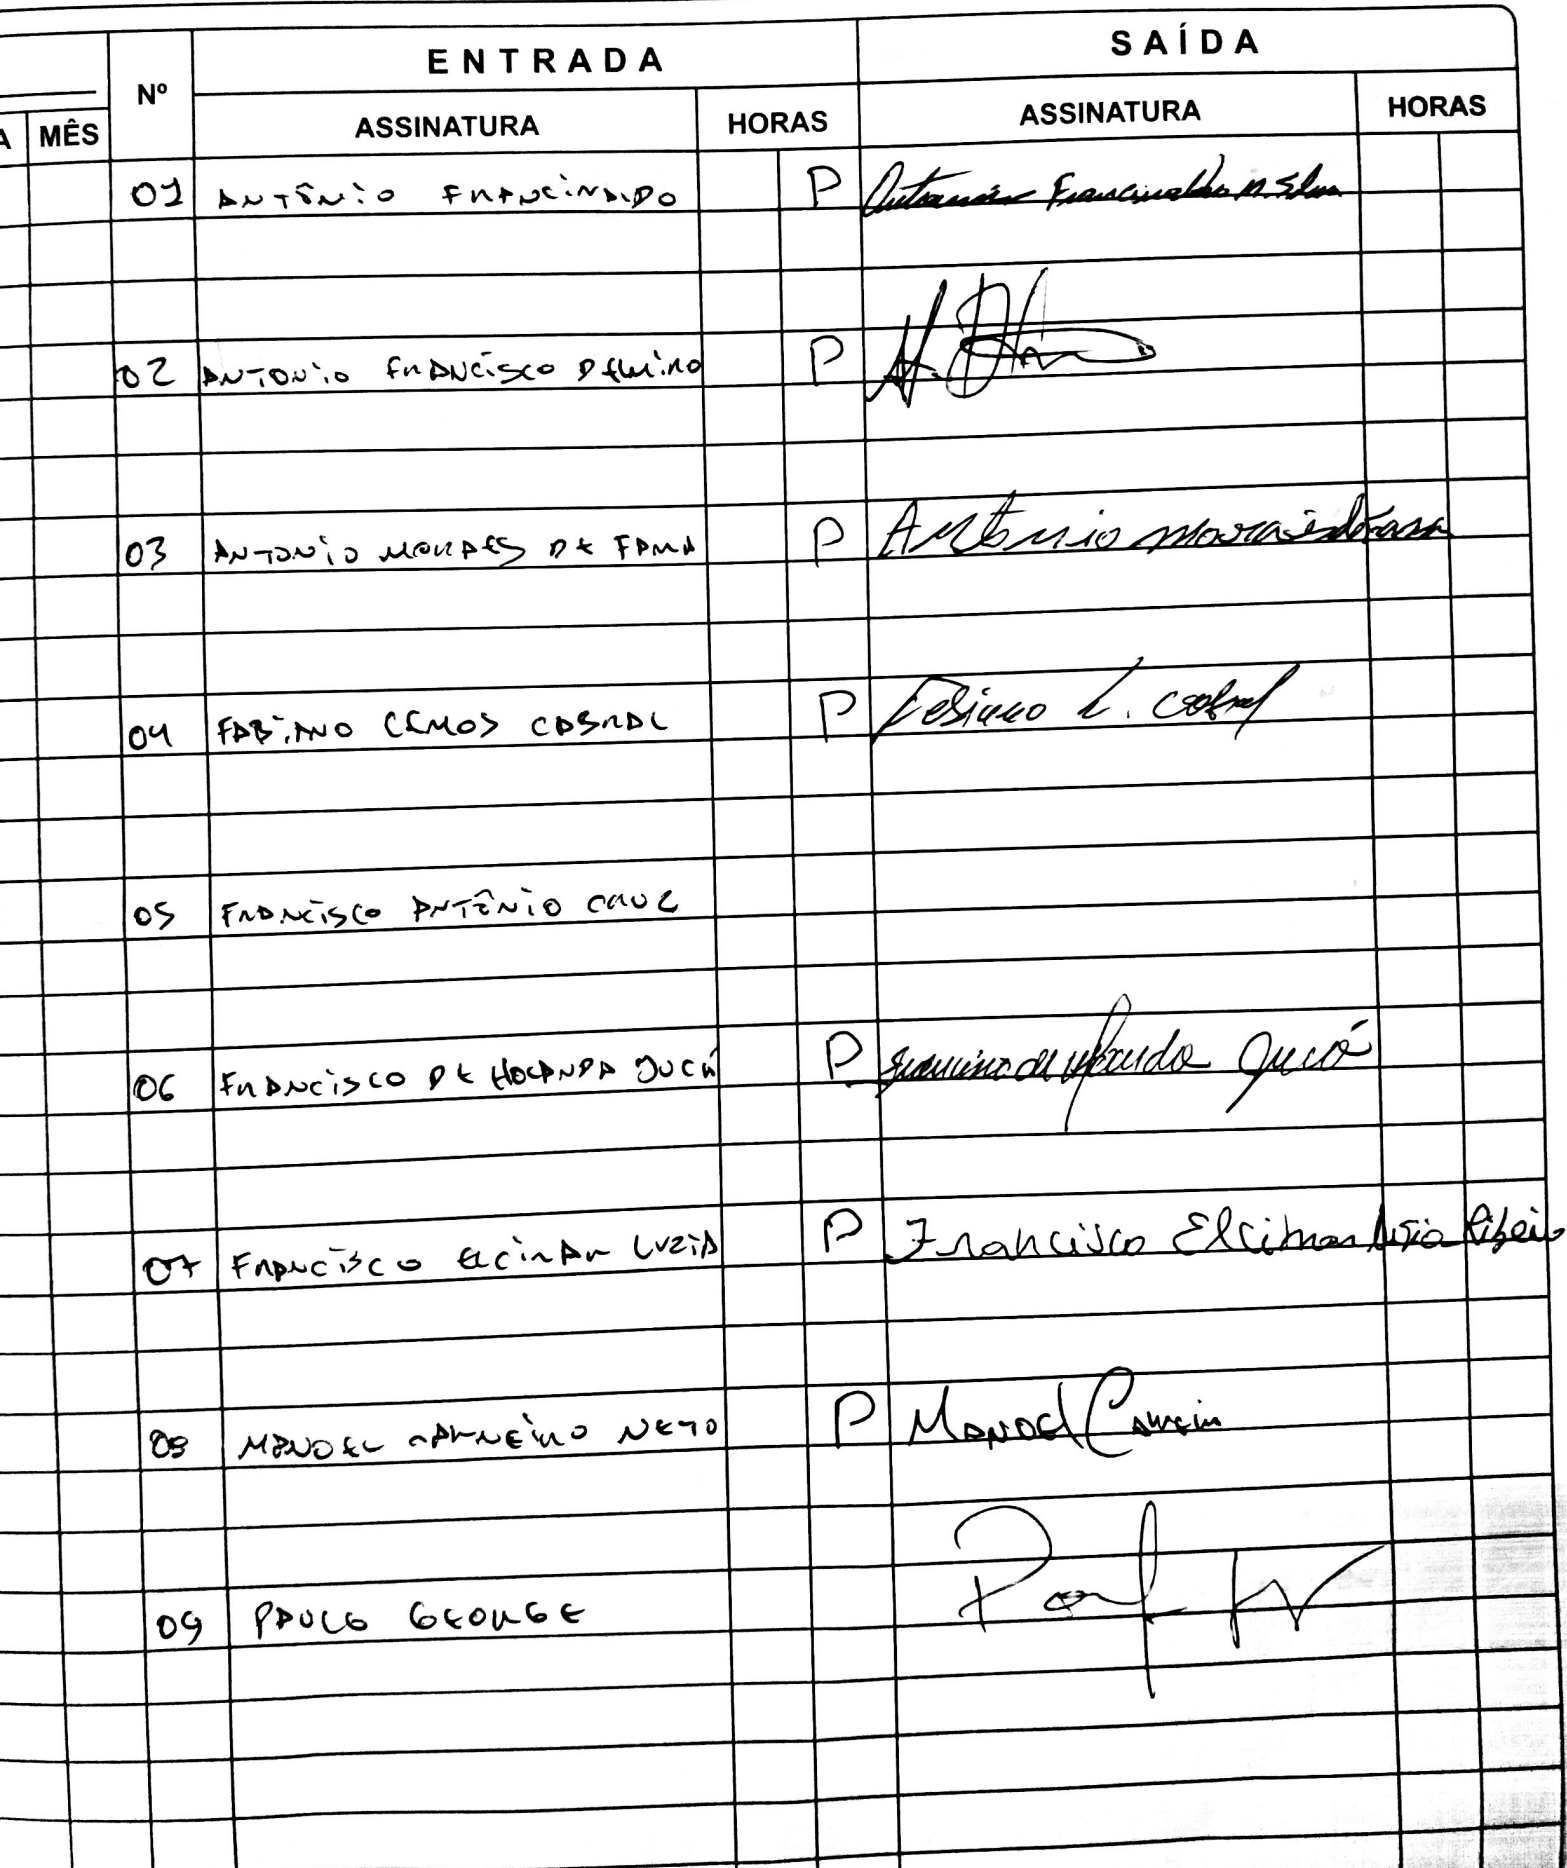 Nº ENTRADA SAÍDA
A MÊS ASSINATURA HORAS ASSINATURA HORAS
01 ANTÔNIO FRANCINALDO P Francinaldo
02 ANTONIO FRANCISCO P
03 ANTONIO MORAES DE FARIA P Antonio
04 FABIANO LEMOS CABRAL P Fabiano L. Cabral
05 FRANCISCO ANTÔNIO CRUZ
06 FRANCISCO DE HOLANDA JUCÁ P Francisco de Holanda Jucá
07 FRANCISCO ELCIMAR LUZIA P Francisco Elcimar Luzia Ribeiro
08 MANOEL CARNEIRO NETO P Manoel Carneiro
09 PAULO GEORGE